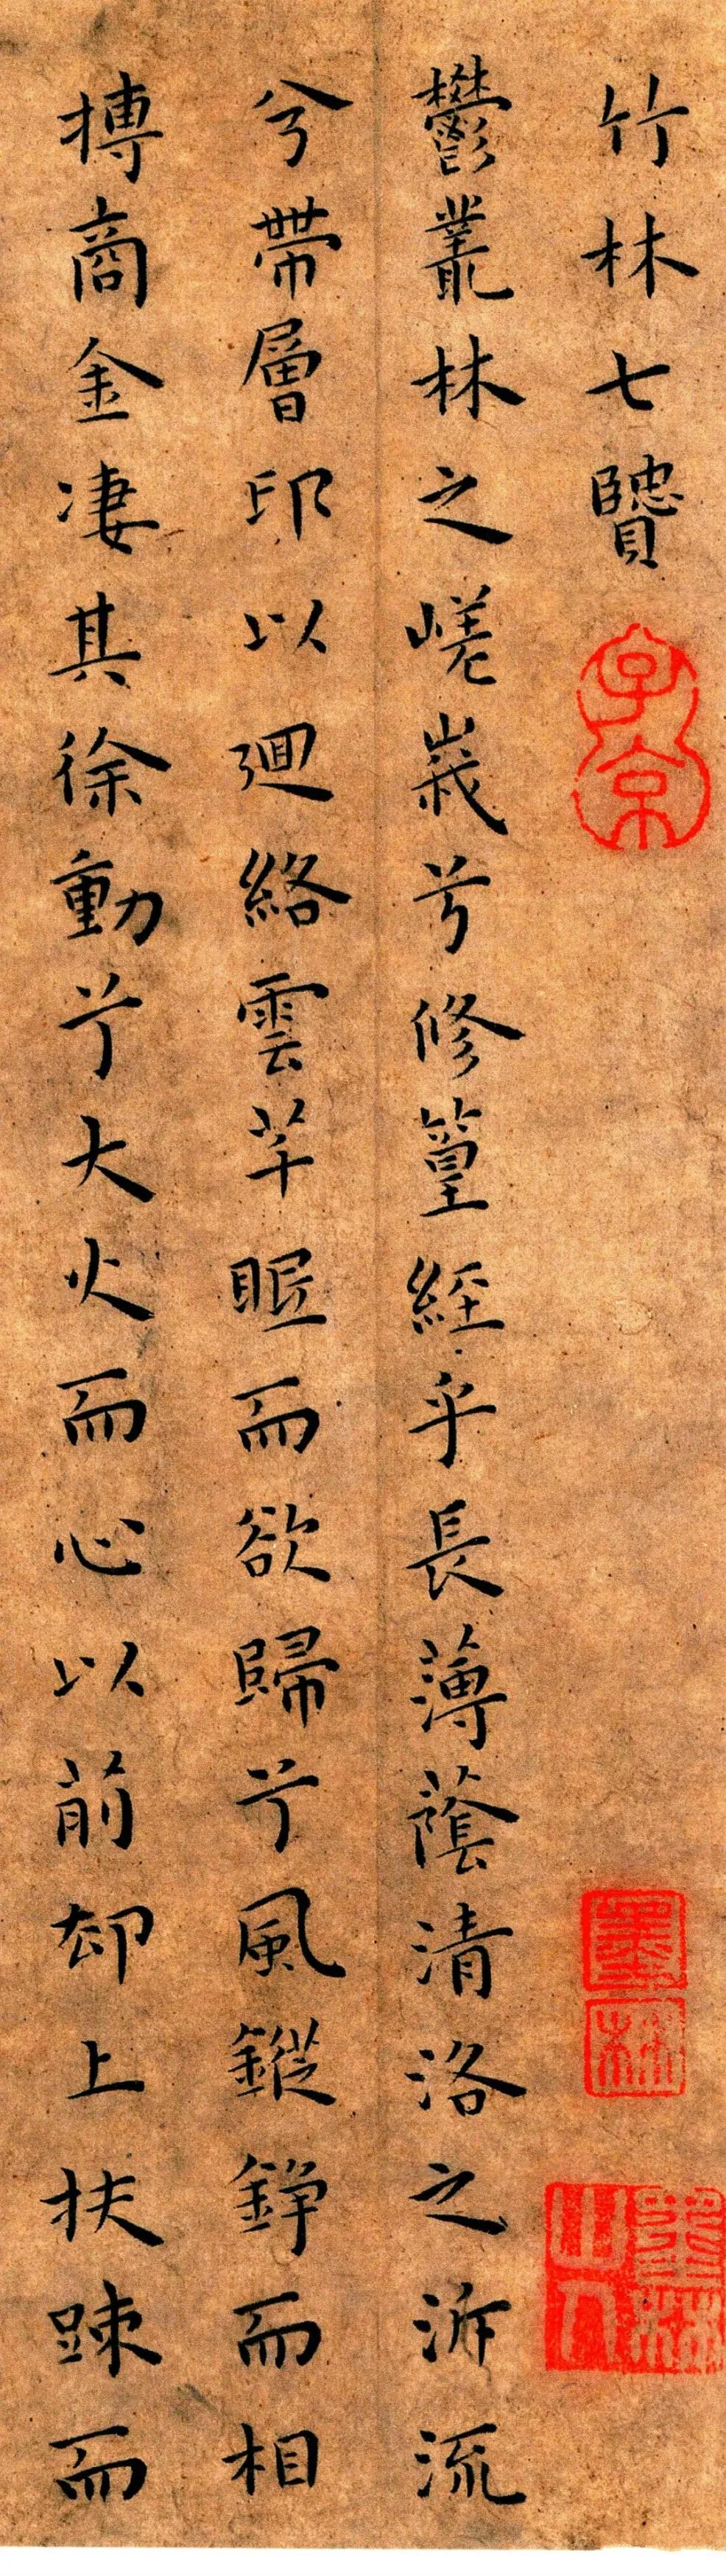 竹林七贒
鬱叢林之嵯峩兮修篁經乎長薄蔭清洛之泝流
兮帶層印以廻絡雲芊眠而欲歸兮風鏦錚而相
搏商金凄其徐動兮大火而心以前却上扶踈而
子京
墨林
墨林山人